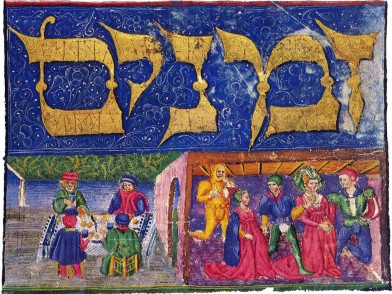 זמנים